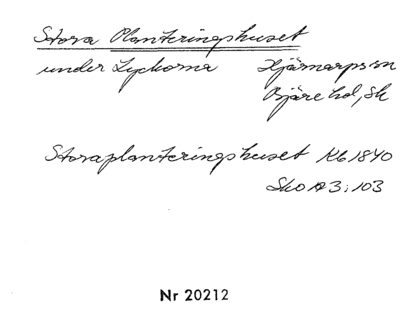 Stora Planteringshuset
under Lyckorna Hjärnarps sn
Bjäre hd, Sk
Storaplanteringshuset Kb 1840
Sko A3:103
Nr 20212